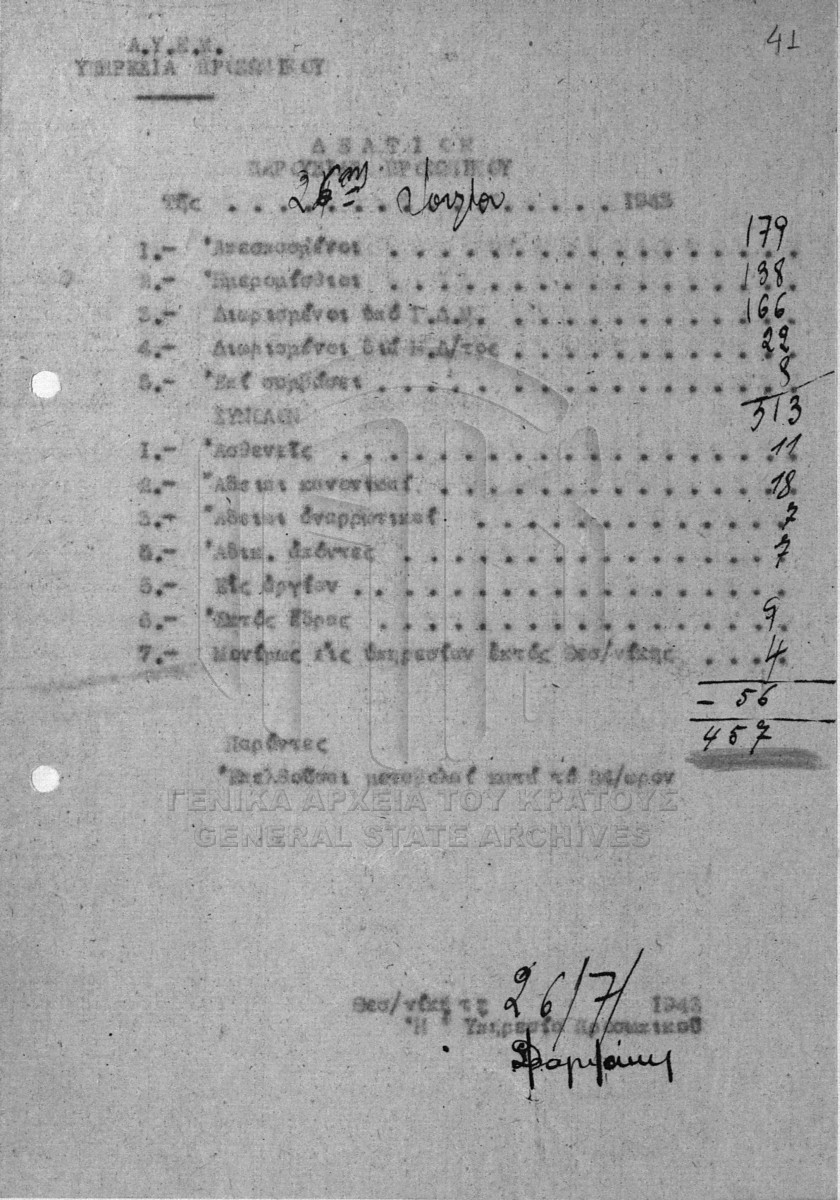 41
Α.Υ.Ε.Μ.
ΥΠΗΡΕΣΙΑ ΠΡΟΣΩΠΙΚΟΥ
ΔΕΛΤΙΟΝ
ΠΑΡΟΥΣΙΑΣ ΠΡΟΣΩΠΙΚΟΥ
Τῆς . . . 26ης . . . Ἰουλίου . . . . 1943
1.- Ἀπεσπασμένοι . . . . . . . . . . . . . . . 179
2.- Ἡμερομίσθιοι . . . . . . . . . . . . . . . 138
3.- Διωρισμένοι ὑπό Γ.Δ.Μ. . . . . . . . . . . 166
4.- Διωρισμένοι διά Ν.Δ/τος . . . . . . . . . . 22
5.- Ἐπί συμβάσει . . . . . . . . . . . . . . . 8
ΣΥΝΟΛΟΝ 513
1.- Ἀσθενεῖς . . . . . . . . . . . . . . . . . 11
2.- Ἄδειαι κανονικαί . . . . . . . . . . . . . 18
3.- Ἄδειαι ἀναρρωτικαί . . . . . . . . . . . . 7
5.- Ἀδικ. ἀπόντες . . . . . . . . . . . . . . 7
5.- Εἰς ἀργίαν . . . . . . . . . . . . . . . .
6.- Ἐκτός ἕδρας . . . . . . . . . . . . . . . 9
7.- Μονίμως εἰς ὑπηρεσίαν ἐκτός Θεσ/νίκης . . . . 4
- 56
Παρόντες 457
Ἐπελθοῦσαι μεταβολαί κατά τό 24/ωρον
ΓΕΝΙΚΑ ΑΡΧΕΙΑ ΤΟΥ ΚΡΑΤΟΥΣ
GENERAL STATE ARCHIVES
Θεσ/νίκη τῇ 26/7/ 1943
Ἡ Ὑπηρεσία Προσωπικοῦ